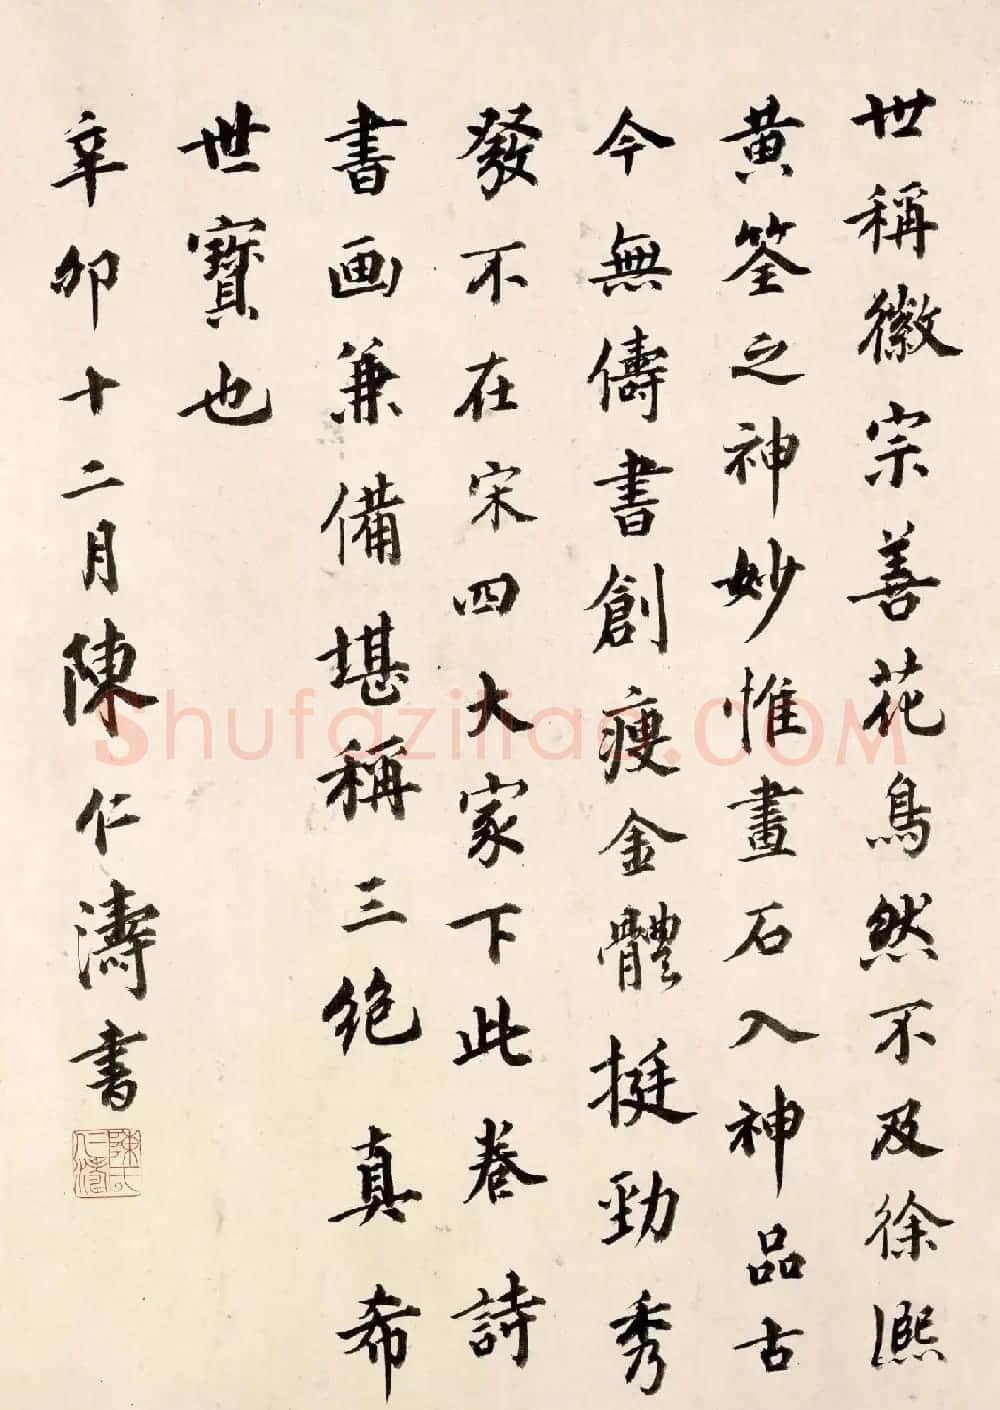 世稱徽宗善花鳥然不及徐熈
黄筌之神妙惟畫石入神品古
今無儔書創瘦金體挺勁秀
發不在宋四大家下此卷詩
書画兼備堪稱三絶真希
世寶也
辛卯十二月陳仁濤書
陳氏仁濤
Shufaziliao.COM